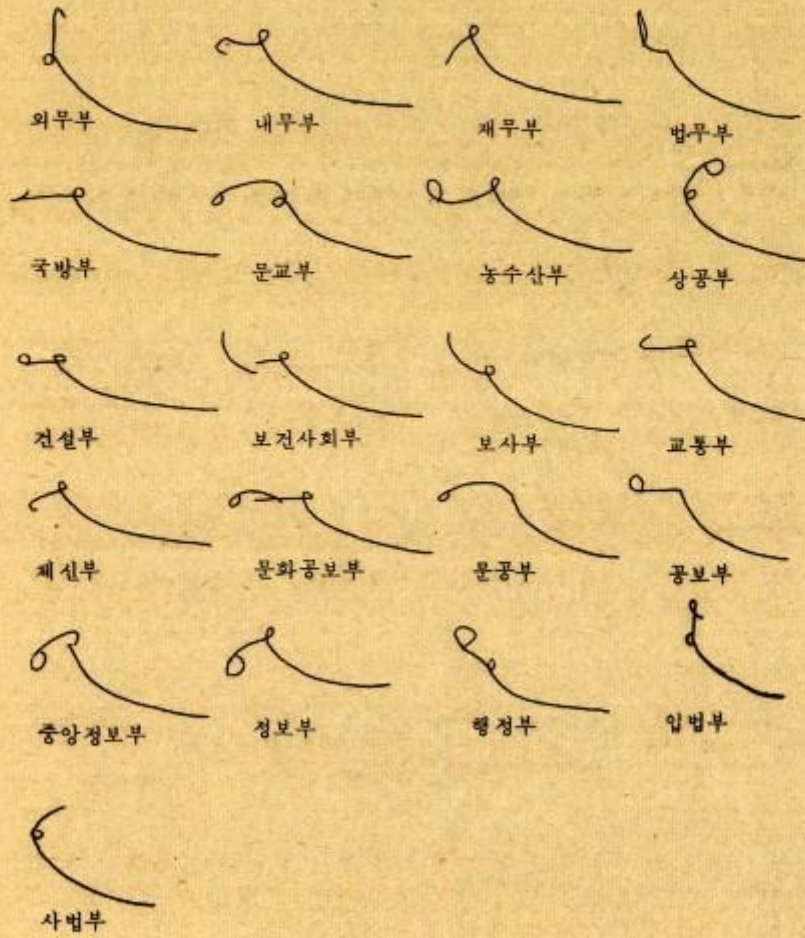 외무부 내무부 재무부 법무부
국방부 문교부 농수산부 상공부
건설부 보건사회부 보사부 교통부
체신부 문화공보부 문공부 공보부
중앙정보부 정보부 행정부 입법부
사법부